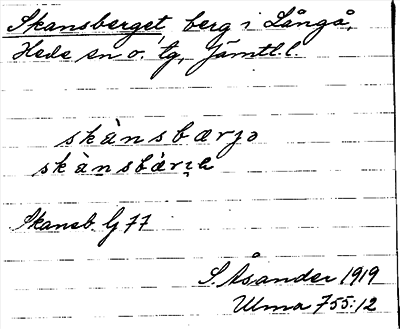 Skansberget, berg i Långå,
Hede sn o. tg, Jämtl. l.
skànsbærjə
skànsbær
Skansb. G 77
S. Åsander 1919
Ulma 755:12